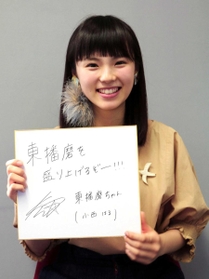 東播磨を
盛り上げるぞー!!!
東播磨ちゃん